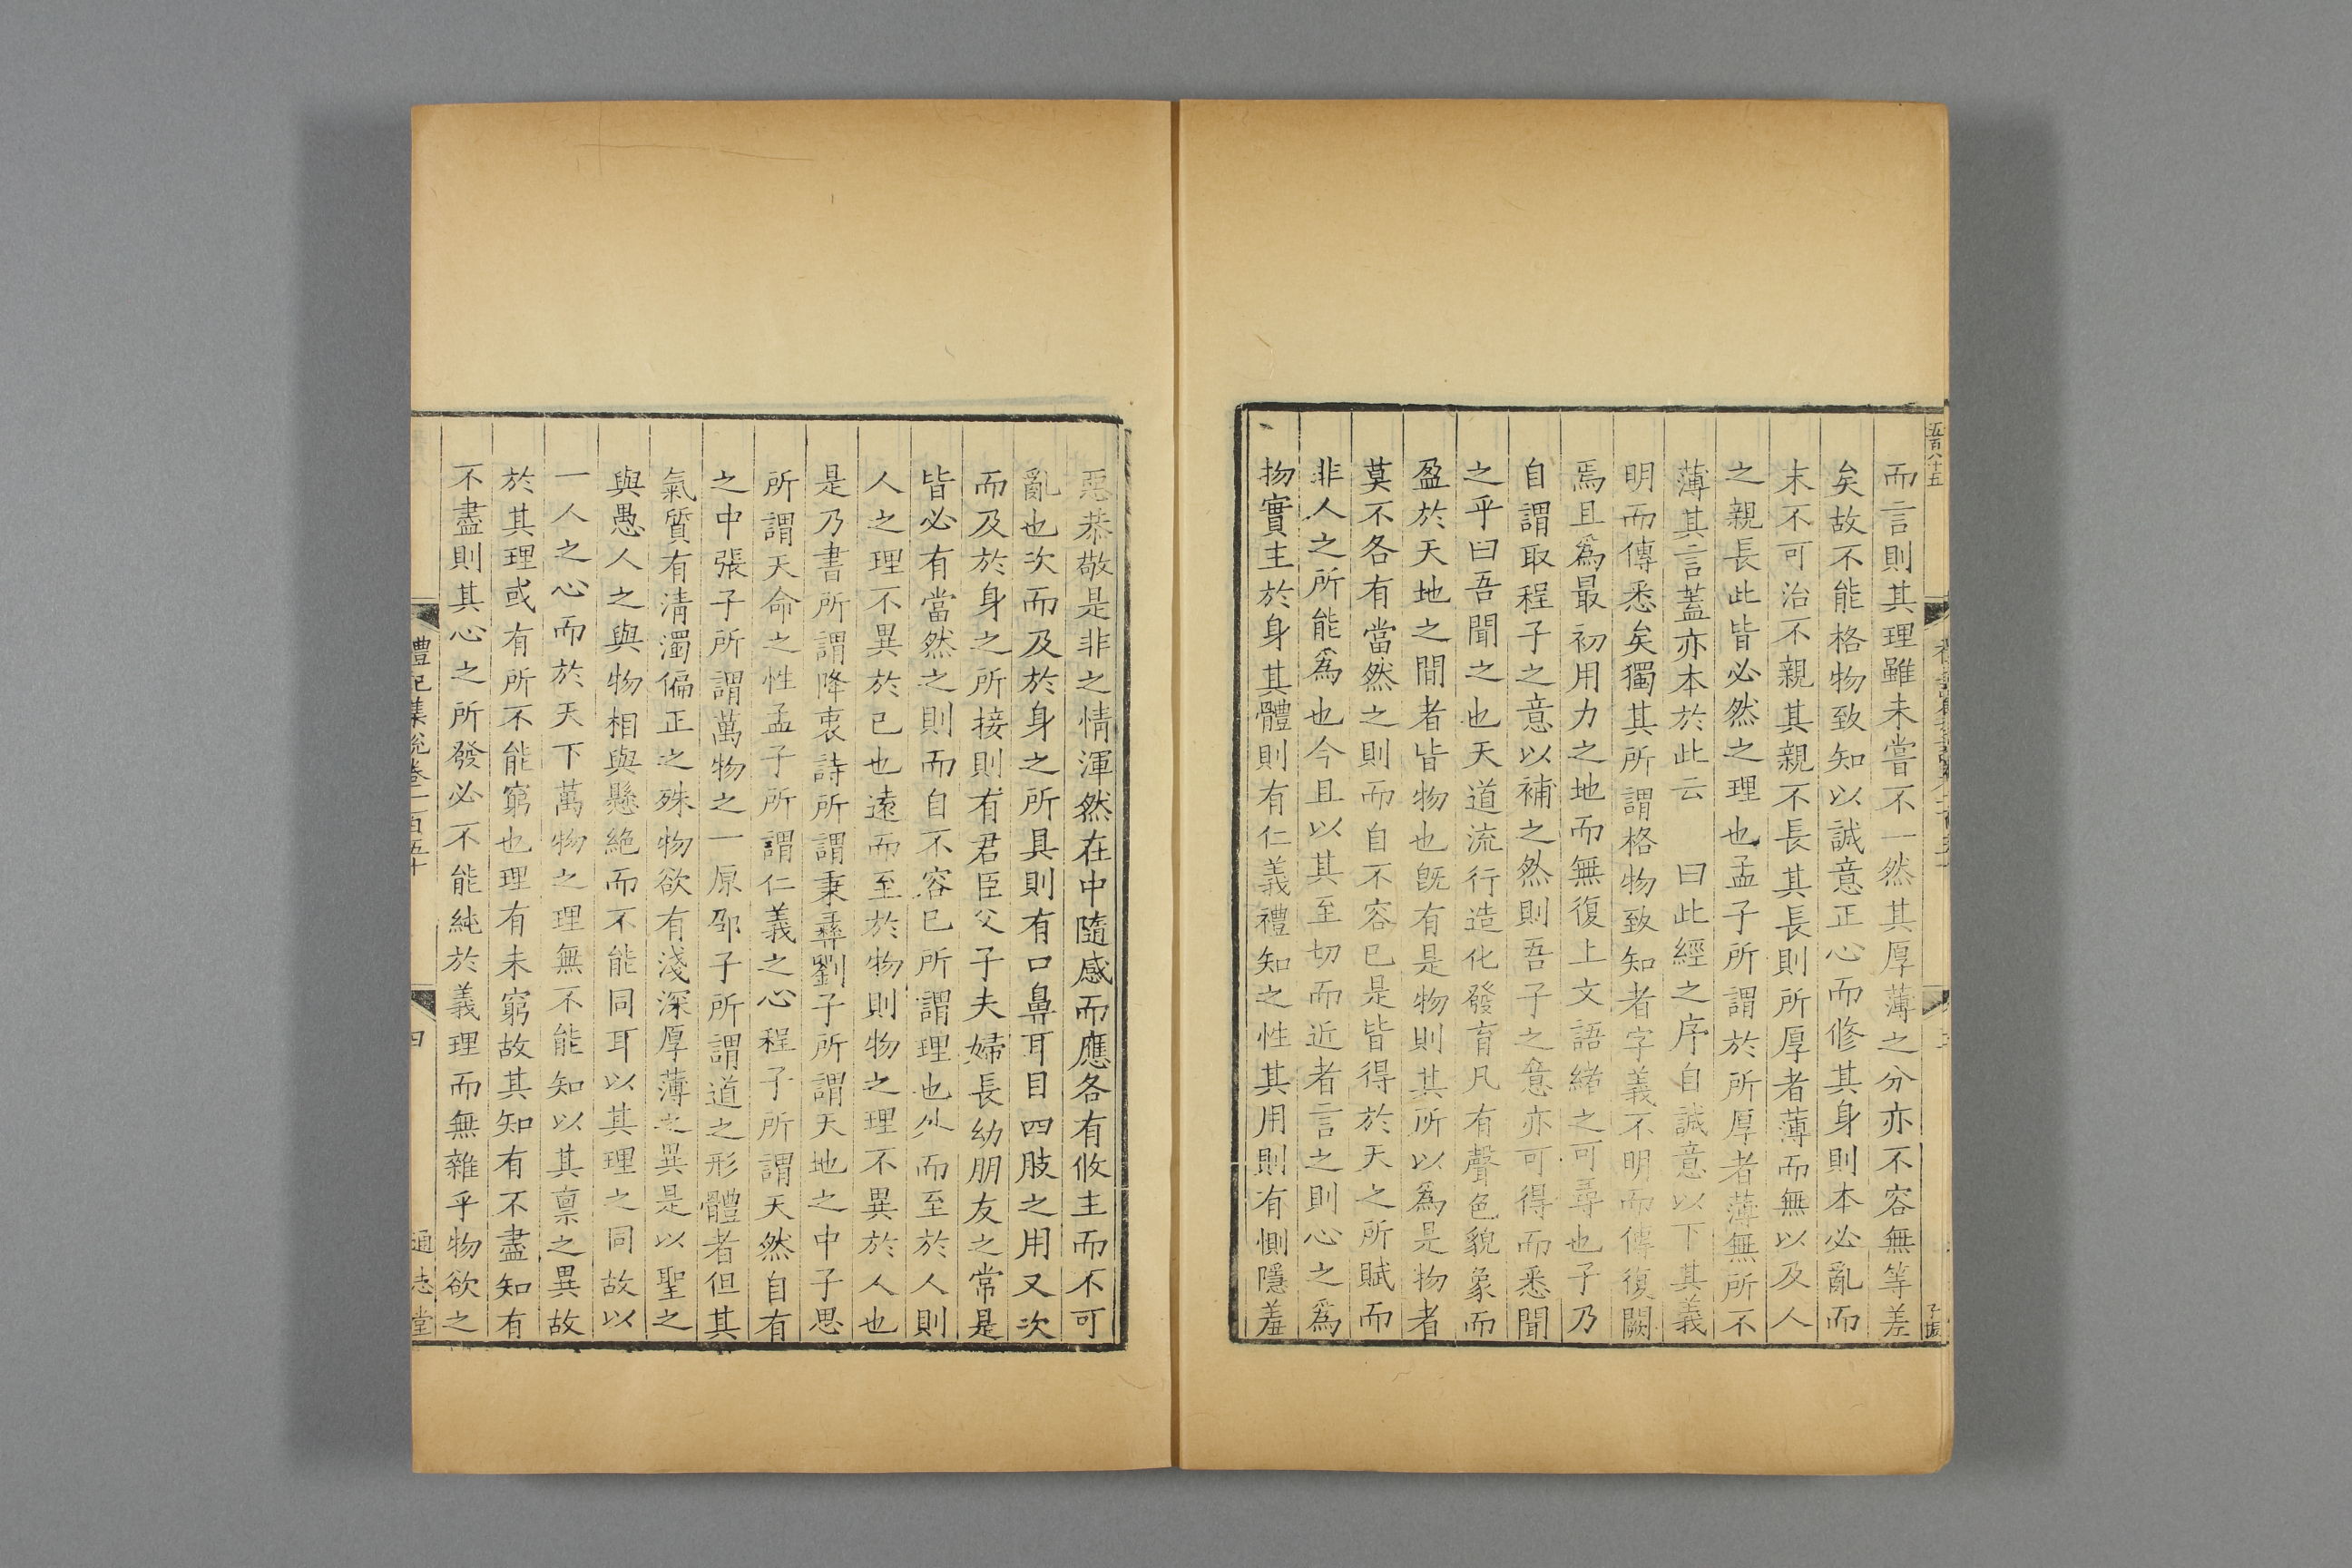 五百八十五
而言則其理雖未嘗不一然其厚薄之分亦不容無等差
矣故不能格物致知以誠意正心而修其身則本必亂而
末不可治不親其親不長其長則所厚者薄而無以及人
之親長此皆必然之理也孟子所謂於所厚者薄無所不
薄其言蓋亦本於此云　曰此經之序自誠意以下其義
明而傳悉矣獨其所謂格物致知者字義不明而傳復闕
焉且爲最初用力之地而無復上文語緒之可尋也子乃
自謂取程子之意以補之然則吾子之意亦可得而悉聞
之乎曰吾聞之也天道流行造化發育凡有聲色貌象而
盈於天地之間者皆物也旣有是物則其所以爲是物者
莫不各有當然之則而自不容已是皆得於天之所賦而
非人之所能爲也今且以其至切而近者言之則心之爲
物實主於身其體則有仁義禮知之性其用則有惻隱羞
惡恭敬是非之情渾然在中隨感而應各有攸主而不可
亂也次而及於身之所具則有口鼻耳目四肢之用又次
而及於身之所接則有君臣父子夫婦長幼朋友之常是
皆必有當然之則而自不容已所謂理也外而至於人則
人之理不異於已也遠而至於物則物之理不異於人也
是乃書所謂降衷詩所謂秉彞劉子所謂天地之中子思
所謂天命之性孟子所謂仁義之心程子所謂天然自有
之中張子所謂萬物之一原邵子所謂道之形體者但其
氣質有清濁偏正之殊物欲有淺深厚薄之異是以聖之
與愚人之與物相與懸絶而不能同耳以其理之同故以
一人之心而於天下萬物之理無不能知以其禀之異故
於其理或有所不能窮也理有未窮故其知有不盡知有
不盡則其心之所發必不能純於義理而無雜乎物欲之
禮記集說卷一百五十
四
通志堂